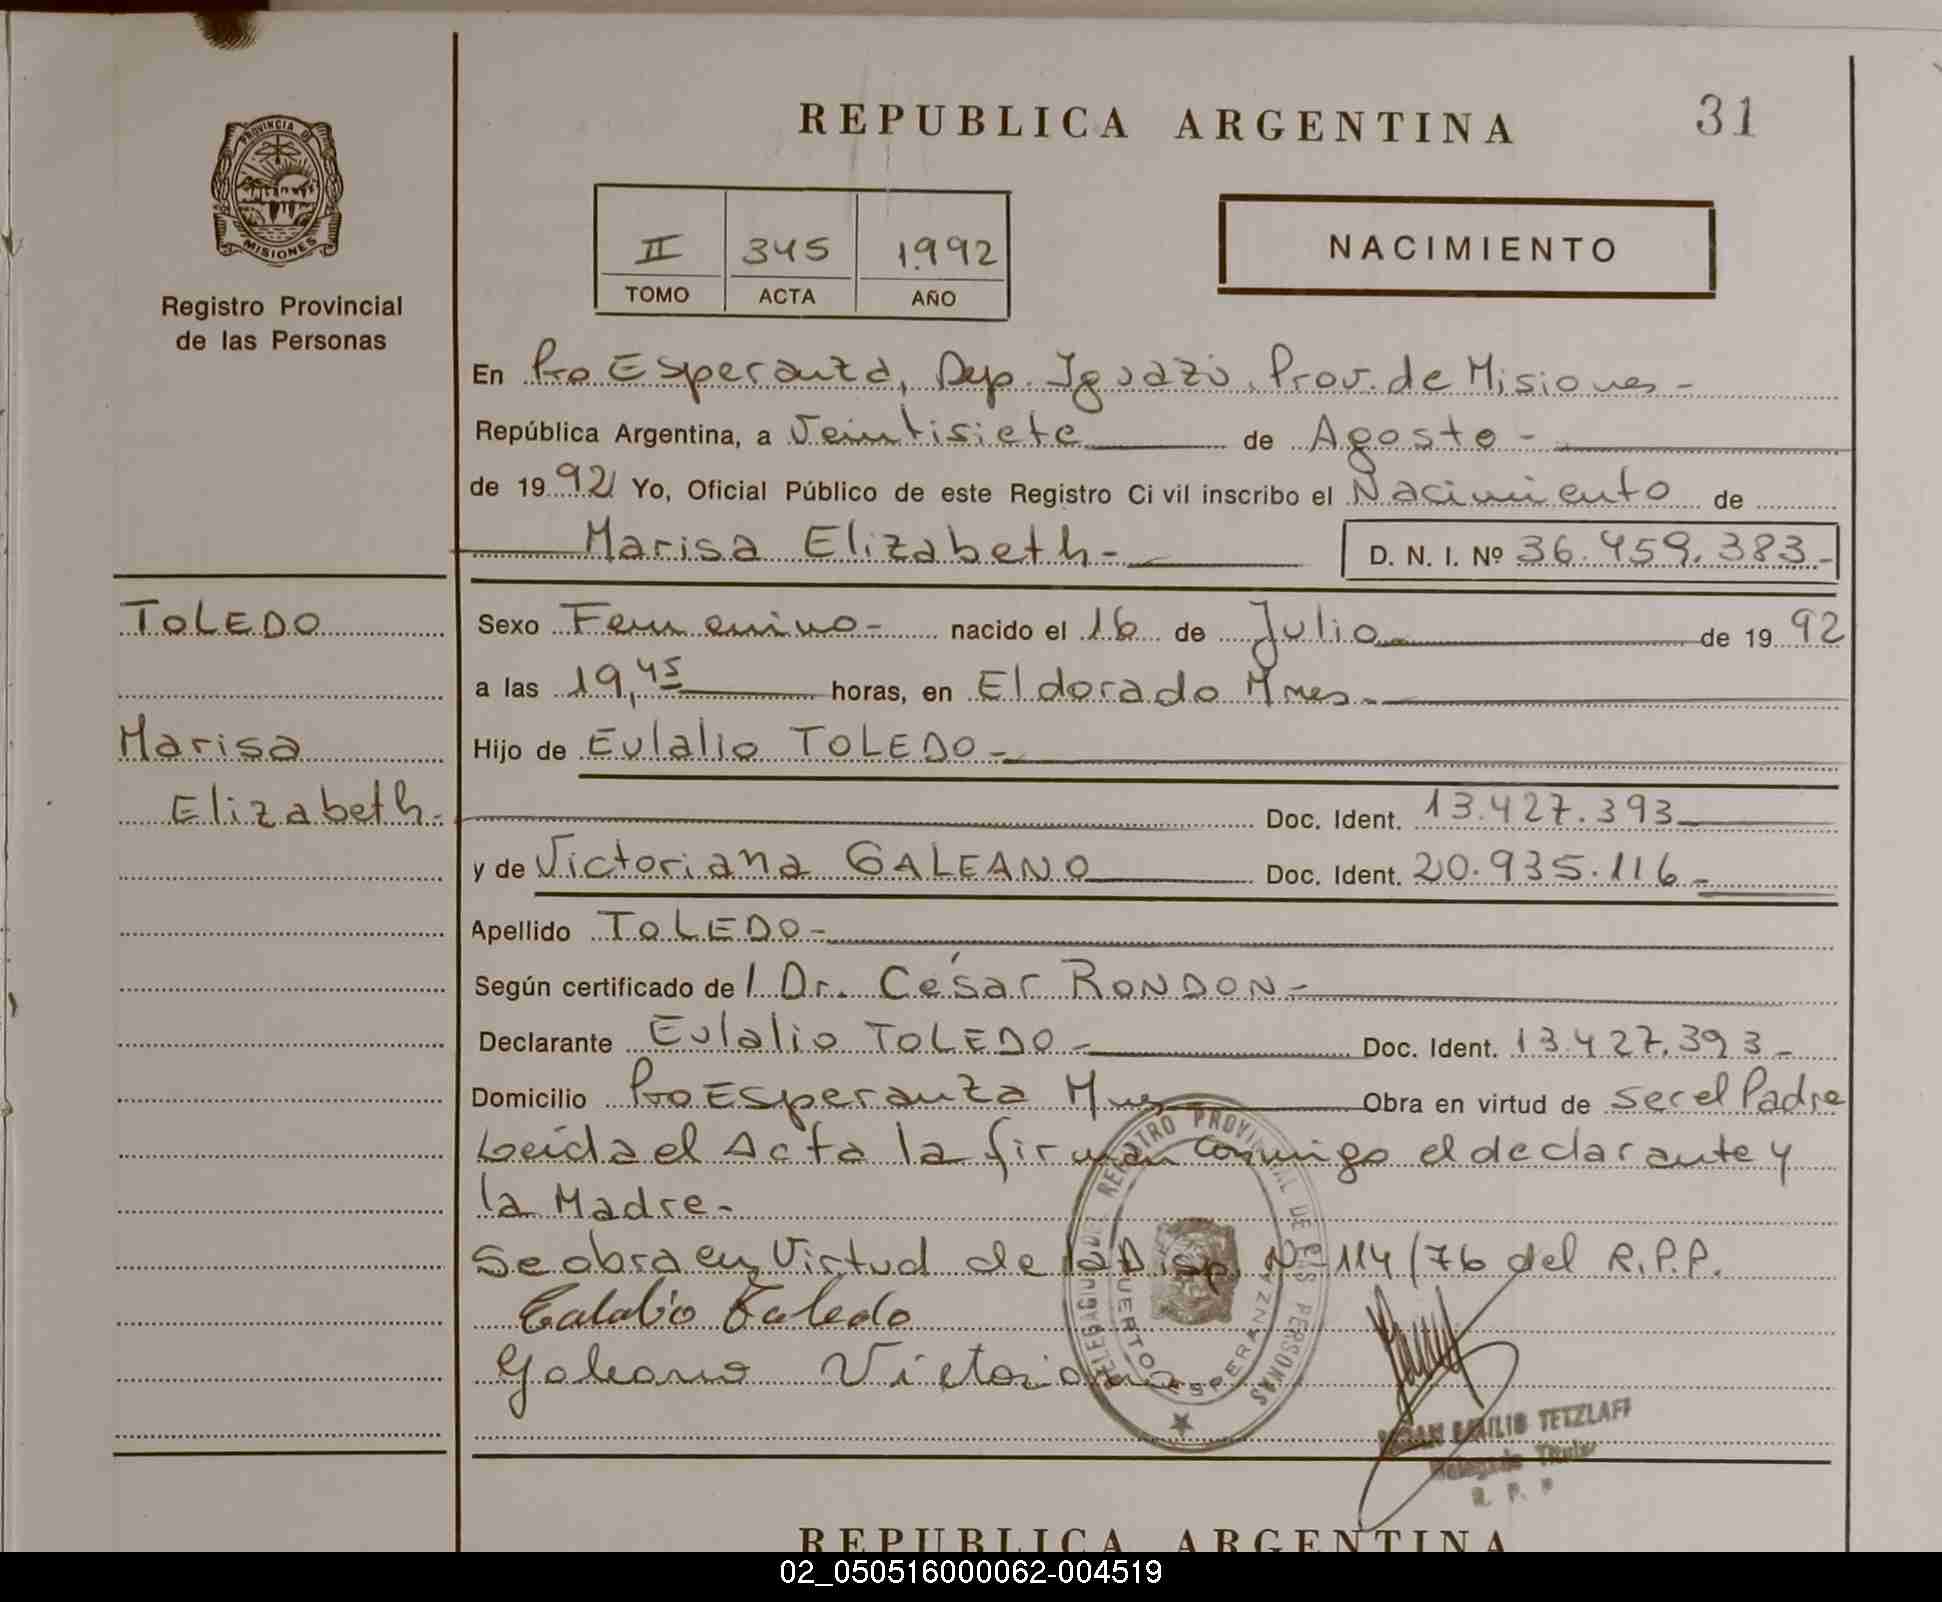 REPUBLICA ARGENTINA
31
PROVINCIA DE
MISIONES
Registro Provincial
de las Personas
II 345 1992
TOMO ACTA AÑO
NACIMIENTO
En Pto Esperanza, Dep. Iguazú, Prov. de Misiones -
República Argentina, a Veintisiete de Agosto -
de 1992 Yo, Oficial Público de este Registro Ci vil inscribo el Nacimiento de
Marisa Elizabeth - D. N. I. Nº 36.459.383 -
TOLEDO
Marisa
Elizabeth -
Sexo Femenino - nacido el 16 de Julio de 1992
a las 19,45 horas, en Eldorado Mnes -
Hijo de Eulalio TOLEDO -
Doc. Ident. 13.427.393
y de Victoriana GALEANO Doc. Ident. 20.935.116 -
Apellido TOLEDO -
Según certificado de l Dr. César RONDON -
Declarante Eulalio TOLEDO - Doc. Ident. 13.427.393 -
Domicilio Pto Esperanza Mnes Obra en virtud de ser el Padre
Leída el Acta la firman conmigo el declarante y
la Madre -
Se obra en Virtud de la Disp. Nº 114/76 del R.P.P.
Eulalio Toledo
Galeano Victoriana
REGISTRO PROVINCIAL DE LAS PERSONAS
PUERTO ESPERANZA
EMILIO TETZLAFF
Delegado Titular
R. P. P
REPUBLICA ARGENTINA
02_050516000062-004519